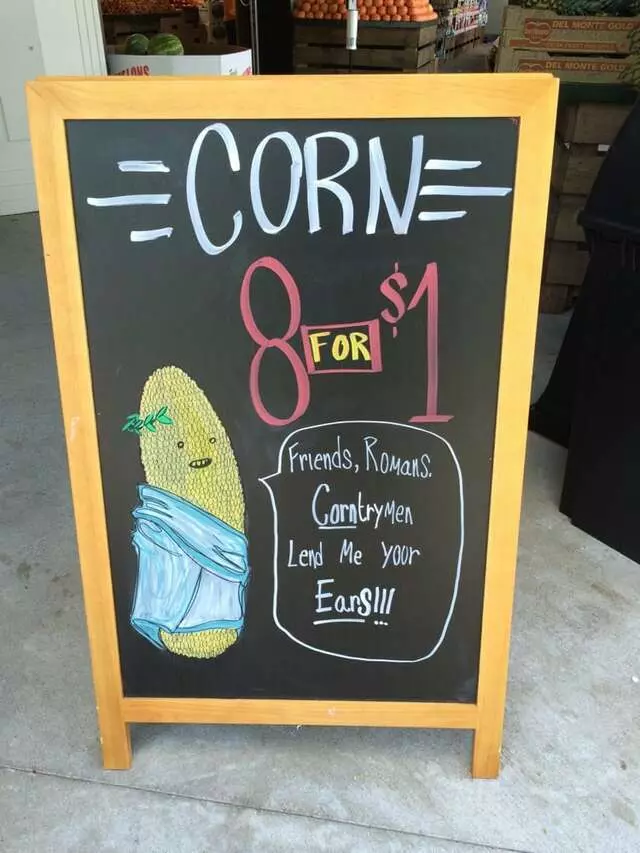 DEL MONTE GOLD
DEL MONTE GOLD
CORN
8 FOR $1
Friends, Romans.
Corntrymen
Lend Me your
Ears!!!